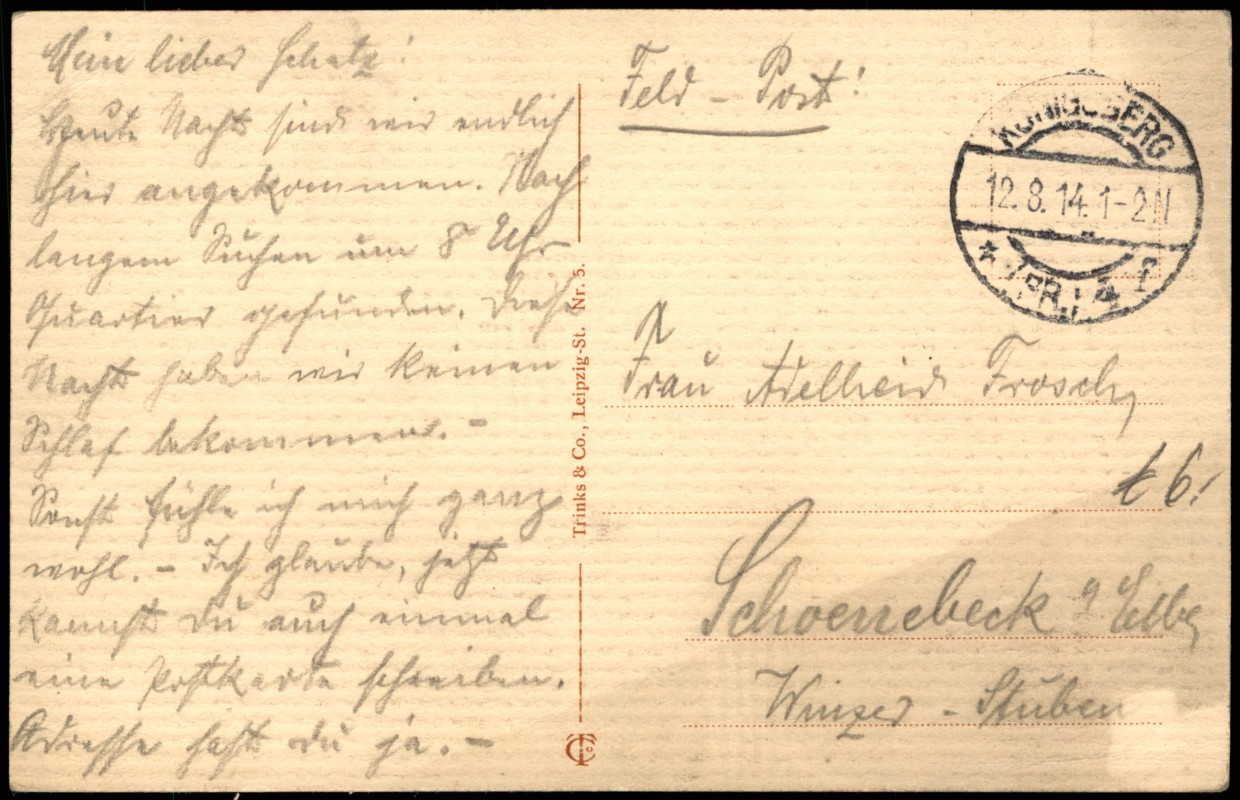 Mein lieber Schatz!
Heute Nacht sind wir endlich
hier angekommen. Nach
langem Suchen um 8 Uhr
Quartier gefunden. Diese
Nacht haben wir keinen
Schlaf bekommen. –
Sonst fühle ich mich ganz
wohl. – Ich glaube, jetzt
kannst du auch einmal
eine Postkarte schreiben.
Adresse hast du ja. –
Trinks & Co., Leipzig-St. Nr. 5.
Feld – Post!
KÖNIGSBERG
12.8.14. 1-2 N
* (PR.) 4 f
Frau Adelheid Frosch,
t 6!
Schoenebeck a/Elbe
Winzer – Stuben